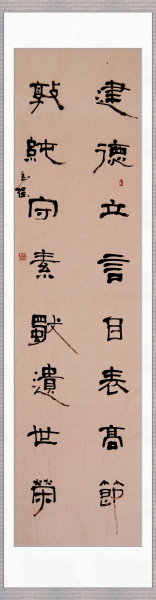 建德立言目表高節
敦純守素猒遺世榮